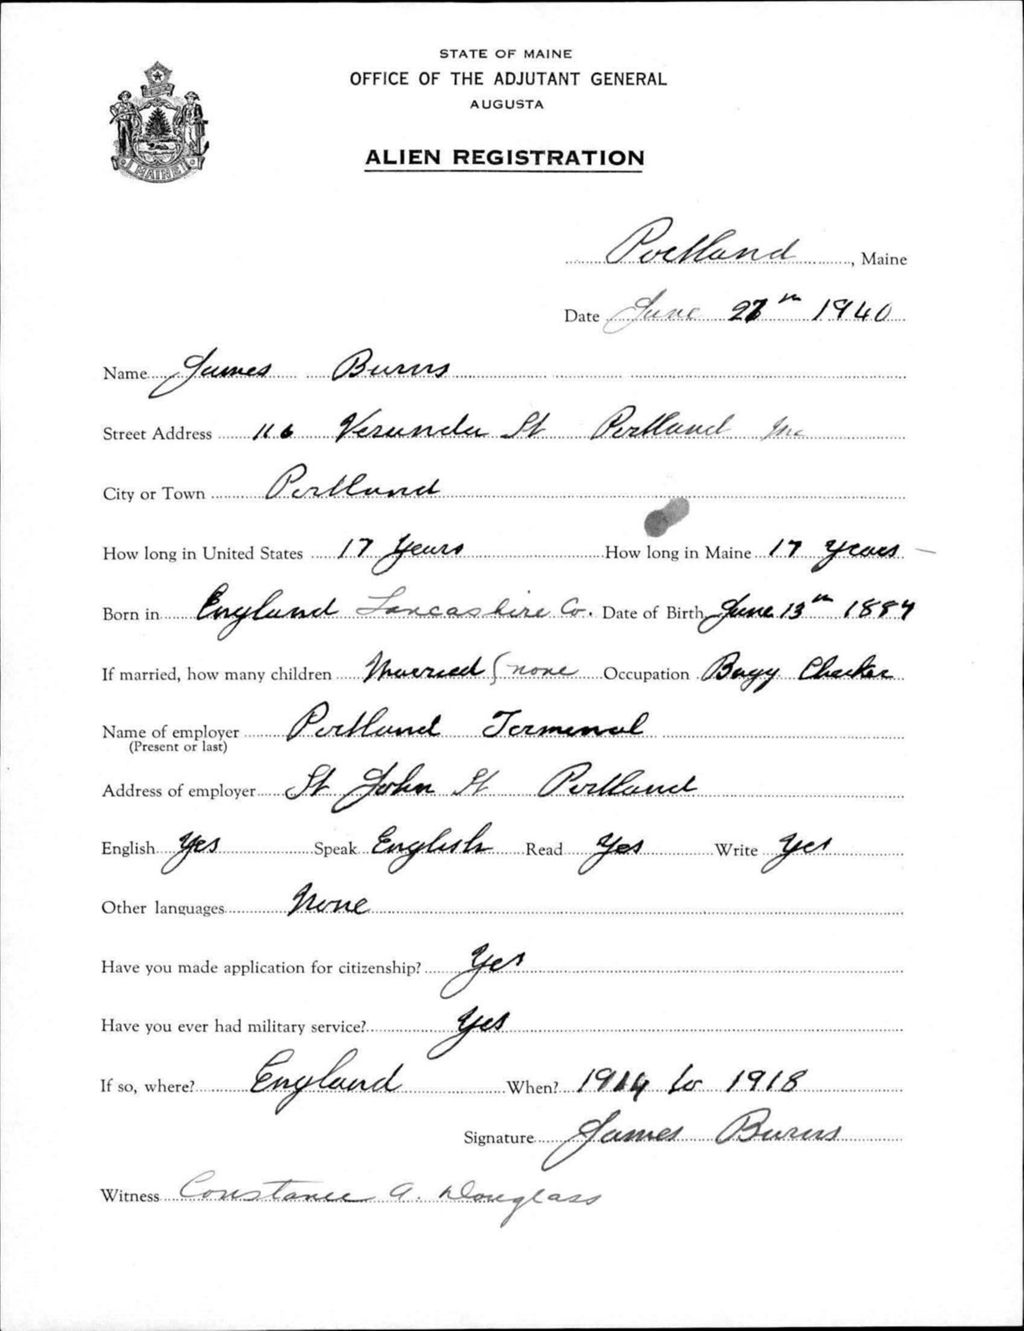 STATE OF MAINE
OFFICE OF THE ADJUTANT GENERAL
AUGUSTA
ALIEN REGISTRATION
MAINE
Portland, Maine
Date June 27th 1940
Name James Burns
Street Address 116 Veranda St Portland Me
City or Town Portland
How long in United States 17 Years How long in Maine 17 Years
Born in England Lancashire Co. Date of Birth June 13th 1884
If married, how many children Married (none Occupation Bagg Checker
Name of employer Portland Terminal
(Present or last)
Address of employer St John St Portland
English Yes Speak English Read Yes Write Yes
Other languages None
Have you made application for citizenship? Yes
Have you ever had military service? Yes
If so, where? England When? 1914 to 1918
Signature James Burns
Witness Constance A. Douglass